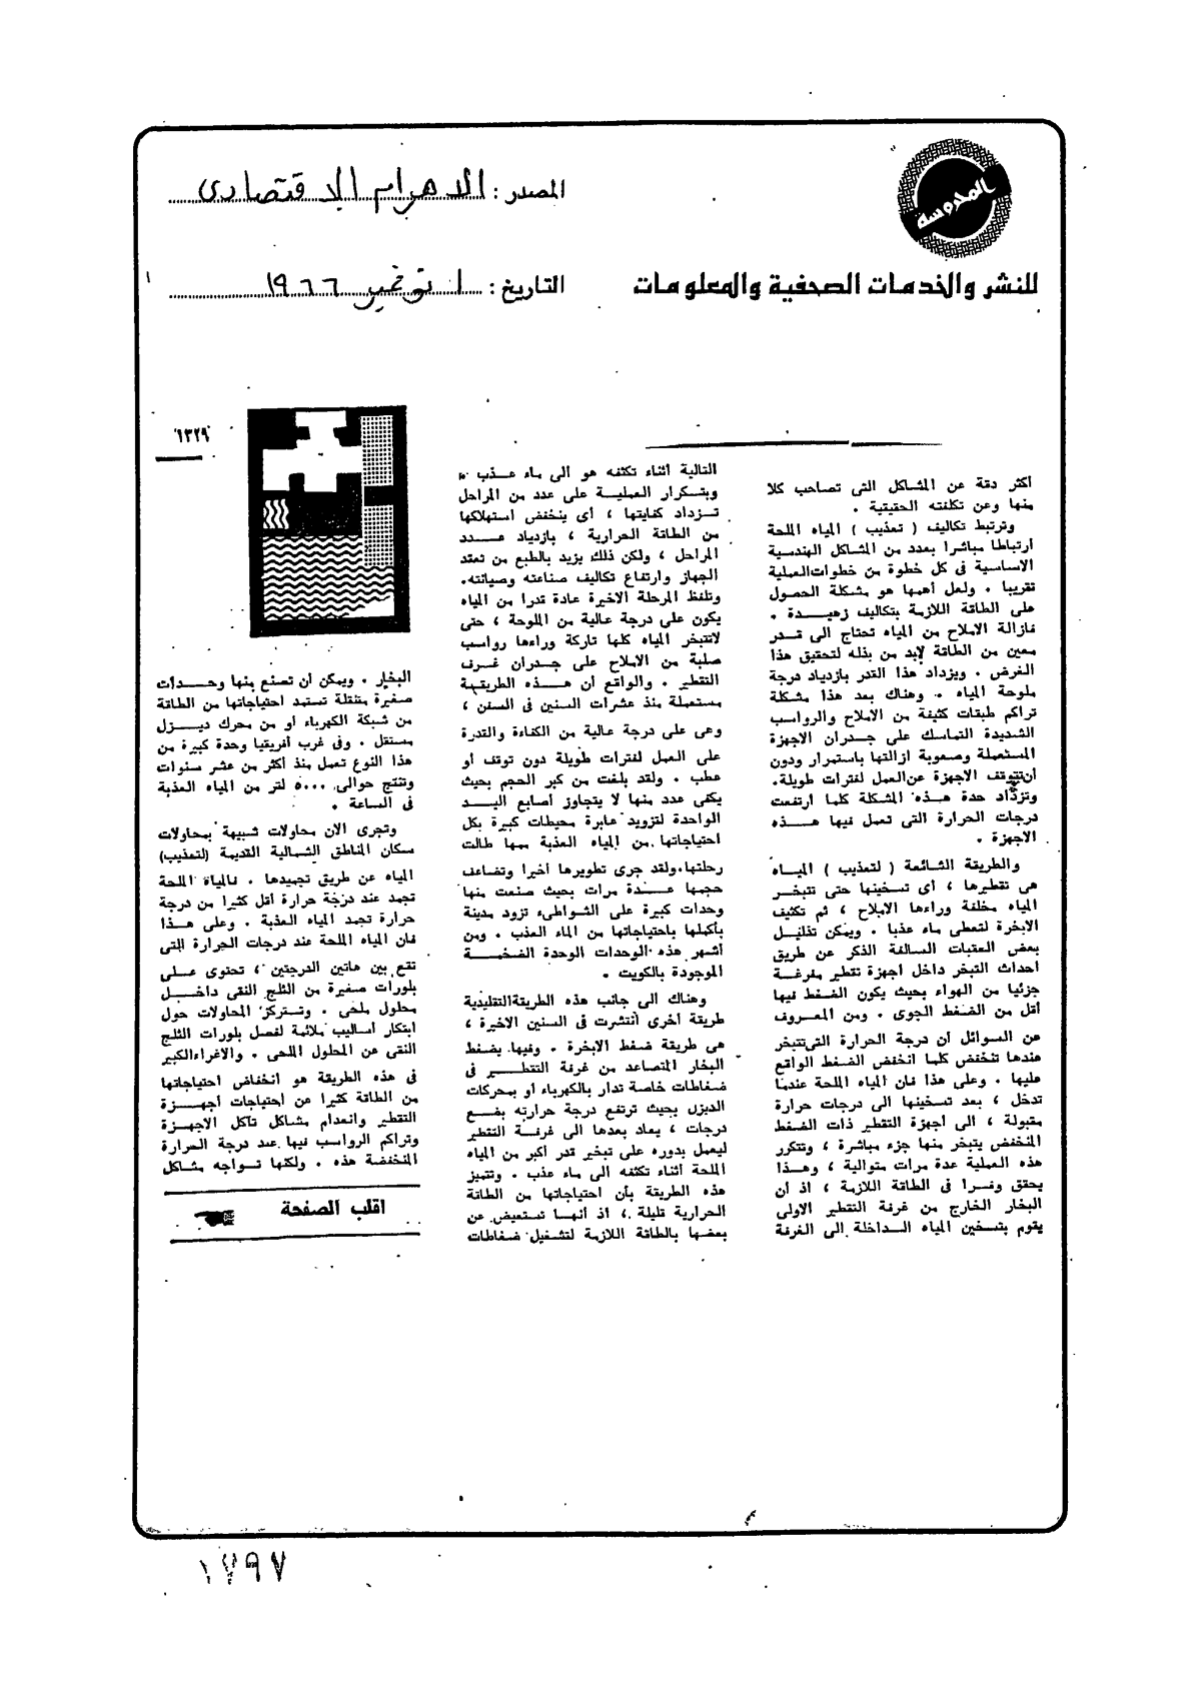 المحروسة
للنشر والخدمات الصحفية والمعلومات
المصدر : الاهرام الاقتصادى
التاريخ : ١ نوفمبر ١٩٦٦
١٣٢٩
أكثر دقة عن المشاكل التى تصاحب كلا
منها وعن تكلفته الحقيقية .
وترتبط تكاليف ( تعذيب ) المياه الملحة
ارتباطا مباشرا بعدد من المشاكل الهندسية
الاساسية فى كل خطوة من خطوات العملية
تقريبا . ولعل أهمها هو مشكلة الحصول
على الطاقة اللازمة بتكاليف زهيـــدة .
فازالة الاملاح من المياه تحتاج الى قـــدر
معين من الطاقة لابد من بذله لتحقيق هذا
الغرض . ويزداد هذا القدر بازدياد درجة
ملوحة المياه . وهناك بعد هذا مشكلة
تراكم طبقات كثيفة من الاملاح والرواسب
الشديدة التماسك على جـــدران الاجهزة
المستعملة وصعوبة ازالتها باستمرار ودون
أن تتوقف الاجهزة عن العمل لفترات طويلة.
وتزداد حدة هـــذه المشكلة كلما ارتفعت
درجات الحرارة التى تعمل فيها هـــذه
الاجهزة .
والطريقة الشائعة ( لتعذيب ) الميـــاه
هى تقطيرها ، أى تسخينها حتى تتبخـــر
المياه مخلفة وراءها الاملاح ، ثم تكثيف
الابخرة لتعطى ماء عذبا . ويمكن تذليـــل
بعض العقبات السالفة الذكر عن طريق
احداث التبخر داخل اجهزة تقطير مفرغـــة
جزئيا من الهواء بحيث يكون الضغط فيها
أقل من الضغط الجوى . ومن المعـــروف
عن السوائل أن درجة الحرارة التى تتبخر
عندها تنخفض كلما انخفض الضغط الواقع
عليها . وعلى هذا فان المياه الملحة عندما
تدخل ، بعد تسخينها الى درجات حرارة
مقبولة ، الى أجهزة التقطير ذات الضغط
المنخفض يتبخر منها جزء مباشرة ، وتتكرر
هذه العملية عدة مرات متوالية ، وهـــذا
يحقق وفـــرا فى الطاقة اللازمة ، اذ أن
البخار الخارج من غرفة التقطير الاولى
يقوم بتسخين المياه الـــداخلة الى الغرفة
التالية أثناء تكثفه هو الى ماء عـــذب .
وبتـــكرار العمليـــة على عدد من المراحل
تـــزداد كفايتها ، أى ينخفض استهلاكها
من الطاقة الحرارية ، بازدياد عـــدد
المراحل ، ولكن ذلك يزيد بالطبع من تعقد
الجهاز وارتفاع تكاليف صناعته وصيانته.
وتلفظ المرحلة الاخيرة عادة قدرا من المياه
يكون على درجة عالية من الملوحة ، حتى
لاتتبخر المياه كلها تاركة وراءها رواسب
صلبة من الاملاح على جـــدران غـــرف
التقطير . والواقع أن هـــذه الطريقـــة
مستعملة منذ عشرات السنين فى السفن ،
وهى على درجة عالية من الكفاءة والقدرة
على العمل لفترات طويلة دون توقف أو
عطب . ولقد بلغت من كبر الحجم بحيث
يكفى عدد منها لا يتجاوز أصابع اليـــد
الواحدة لتزويد عابرة محيطات كبيرة بكل
احتياجاتها من المياه العذبة مهما طالت
رحلتها.ولقد جرى تطويرها أخيرا وتضاعف
حجمها عـــدة مرات بحيث صنعت منها
وحدات كبيرة على الشواطىء تزود مدينة
بأكملها باحتياجاتها من الماء العذب . ومن
أشهر هذه الوحدات الوحدة الضخمـــة
الموجودة بالكويت .
وهناك الى جانب هذه الطريقة التقليدية
طريقة أخرى انتشرت فى السنين الاخيرة ،
هى طريقة ضغط الابخرة . وفيها يضغط
البخار المتصاعد من غرفة التقطـــير فى
ضغاطات خاصة تدار بالكهرباء أو بمحركات
الديزل بحيث ترتفع درجة حرارته بضـــع
درجات ، يعاد بعدها الى غرفـــة التقطير
ليعمل بدوره على تبخير قدر أكبر من المياه
الملحة أثناء تكثفه الى ماء عذب . وتتميز
هذه الطريقة بأن احتياجاتها من الطاقة
الحرارية قليلة ، اذ انهـــا تستعيض عن
بعضها بالطاقة اللازمة لتشغيل ضغاطات
البخار . ويمكن ان تصنع منها وحـــدات
صغيرة متنقلة تستمد احتياجاتها من الطاقة
من شبكة الكهرباء او من محرك ديـــزل
مستقل . وفى غرب أفريقيا وحدة كبيرة من
هذا النوع تعمل منذ أكثر من عشر سنوات
وتنتج حوالى ٥٠٠٠ لتر من المياه العذبة
فى الساعة .
وتجرى الان محاولات شبيهة بمحاولات
سكان المناطق الشمالية القديمة (لتعذيب)
المياه عن طريق تجميدها . فالمياه الملحة
تجمد عند درجة حرارة أقل كثيرا من درجة
حرارة تجمد المياه العذبة . وعلى هـــذا
فان المياه الملحة عند درجات الحرارة التى
تقع بين هاتين الدرجتين ، تحتوى عـــلى
بلورات صغيرة من الثلج النقى داخـــل
محلول ملحى . وتـــتركز المحاولات حول
ابتكار أساليب ملائمة لفصل بلورات الثلج
النقى عن المحلول الملحى . والاغراء الكبير
فى هذه الطريقة هو انخفاض احتياجاتها
من الطاقة كثيرا عن احتياجات أجهـــزة
التقطير وانعدام مشاكل تآكل الاجهـــزة
وتراكم الرواسب فيها عند درجة الحرارة
المنخفضة هذه . ولكنها تـــواجه مشاكل
اقلب الصفحة
١٧٩٧